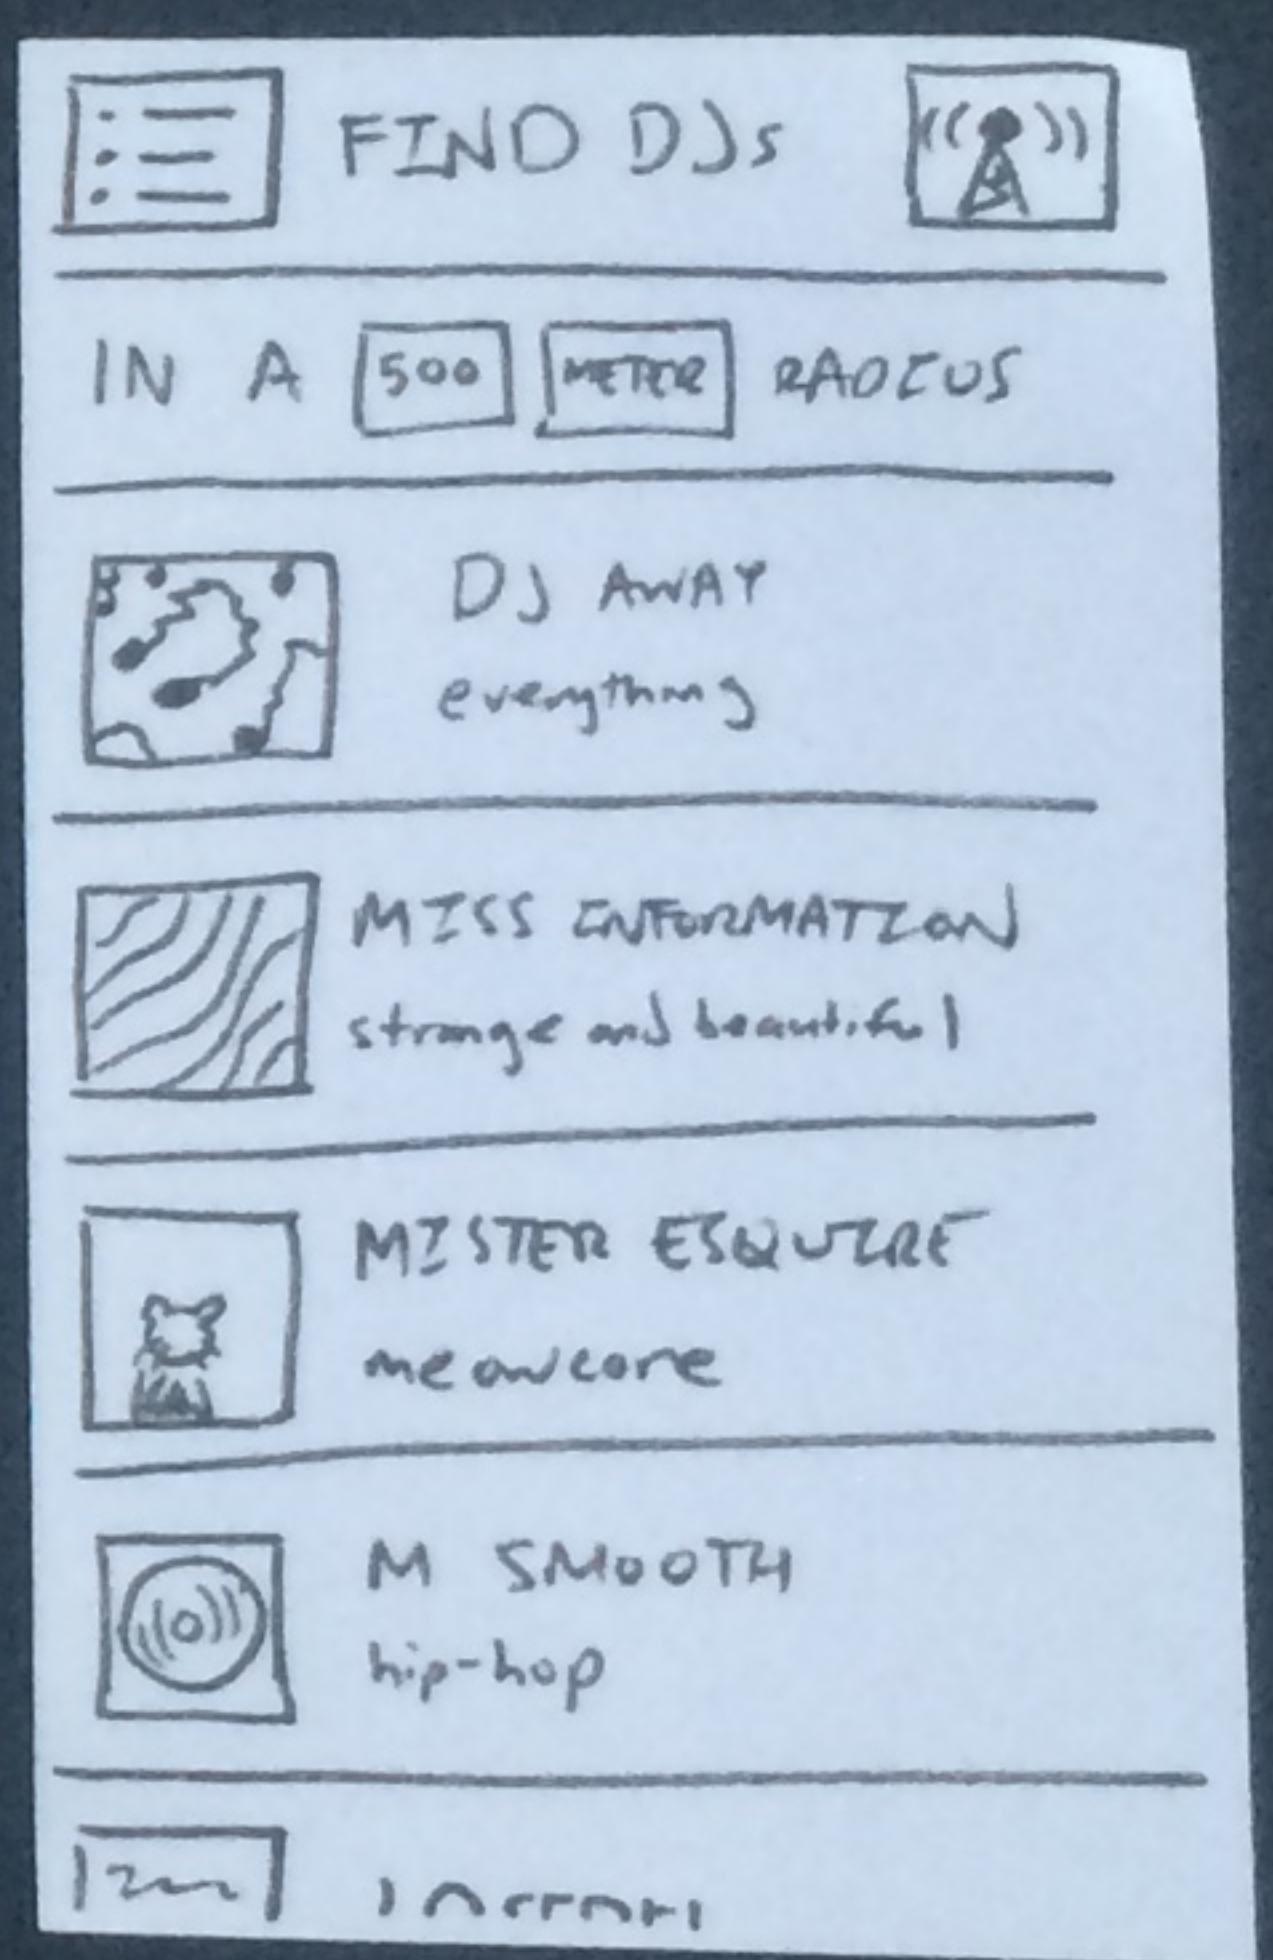 FIND DJs
IN A 500 METER RADIUS
DJ AWAY
everything
MISS INFORMATION
strange and beautiful
MISTER ESQUIRE
meowcore
M SMOOTH
hip-hop